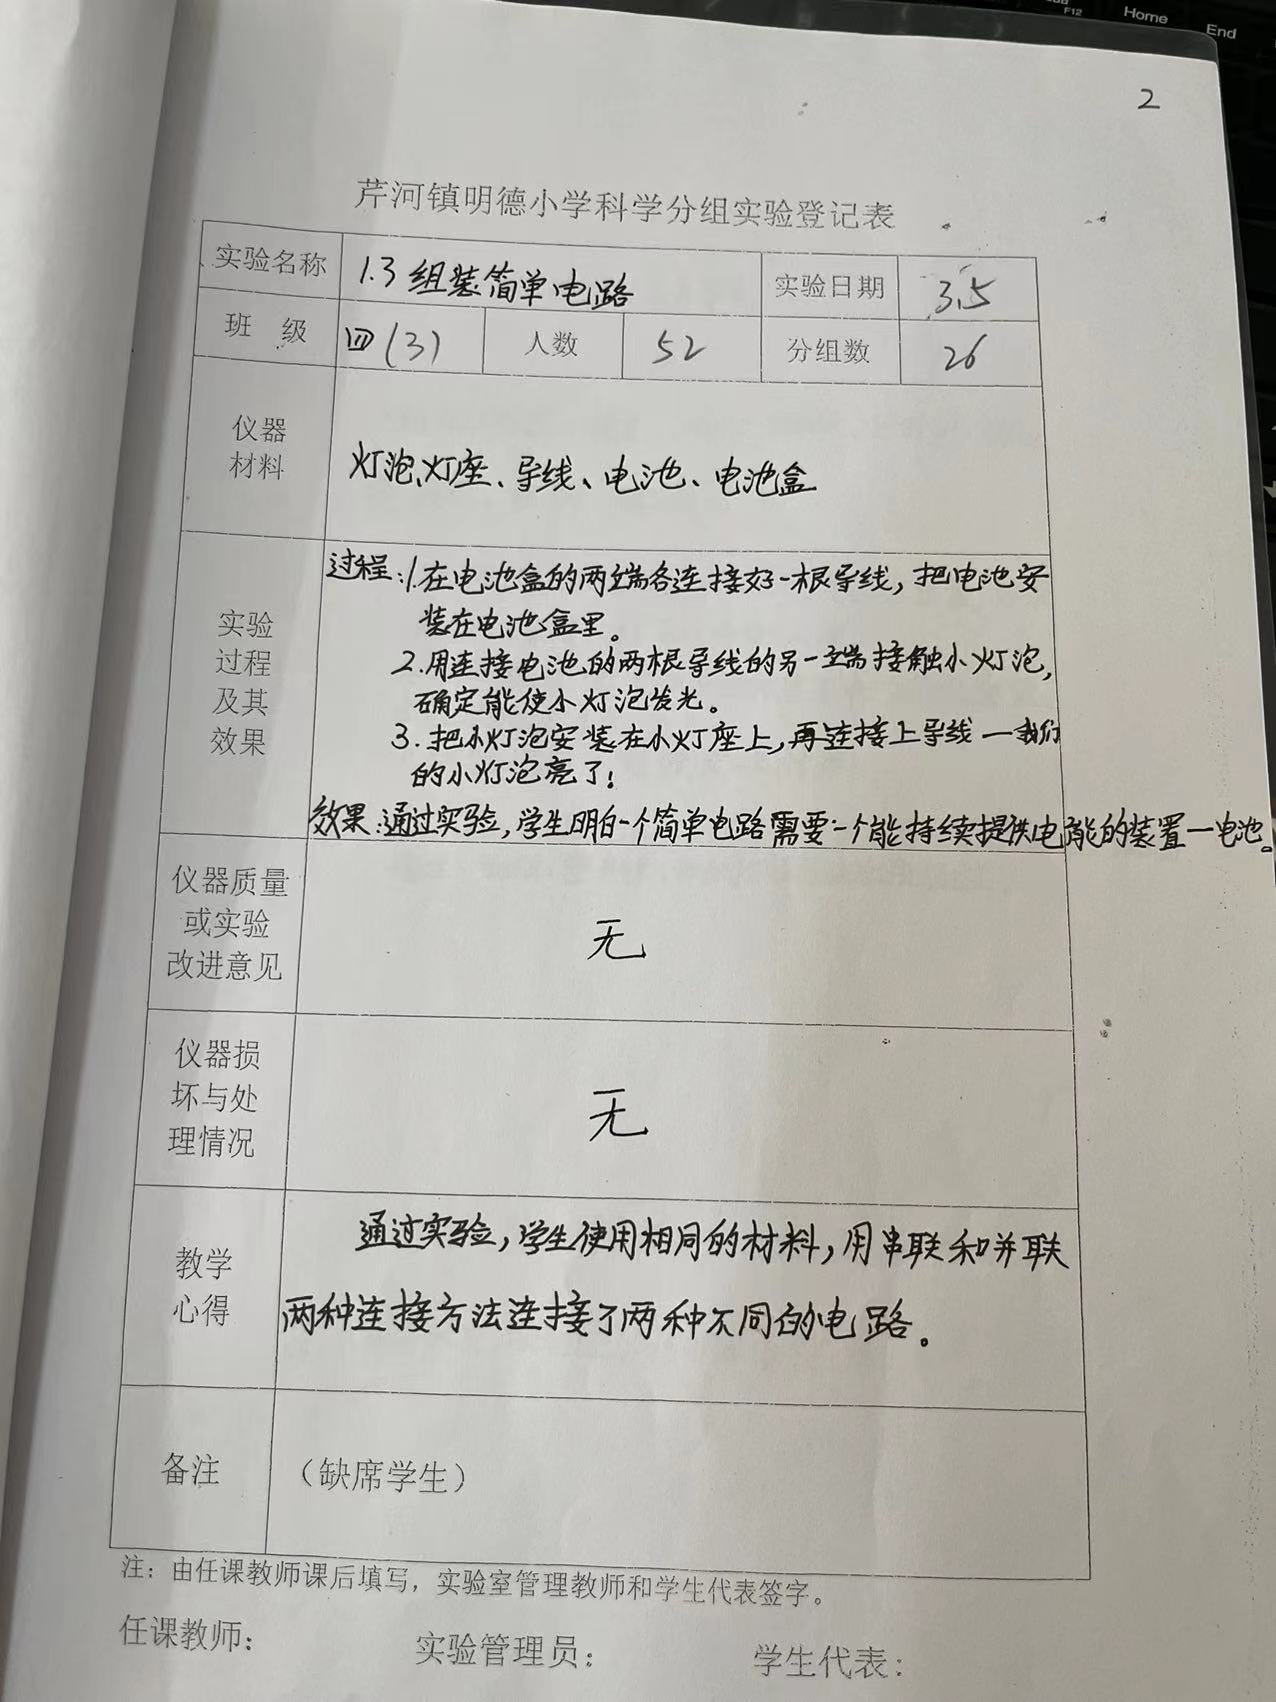 F12 Home End
2
芹河镇明德小学科学分组实验登记表
实验名称 1.3组装简单电路 实验日期 3.5
班 级 四(3) 人数 52 分组数 26
仪器
材料
灯泡、灯座、导线、电池、电池盒
实验
过程
及其
效果
过程:1.在电池盒的两端各连接好一根导线,把电池安
装在电池盒里。
2.用连接电池的两根导线的另一端接触小灯泡,
确定能使小灯泡发光。
3.把小灯泡安装在小灯座上,再连接上导线一我们
的小灯泡亮了!
效果:通过实验,学生明白一个简单电路需要一个能持续提供电能的装置一电池。
仪器质量
或实验
改进意见
无
仪器损
坏与处
理情况
无
教学
心得
通过实验,学生使用相同的材料,用串联和并联
两种连接方法连接了两种不同的电路。
备注 (缺席学生)
注:由任课教师课后填写,实验室管理教师和学生代表签字。
任课教师: 实验管理员: 学生代表: